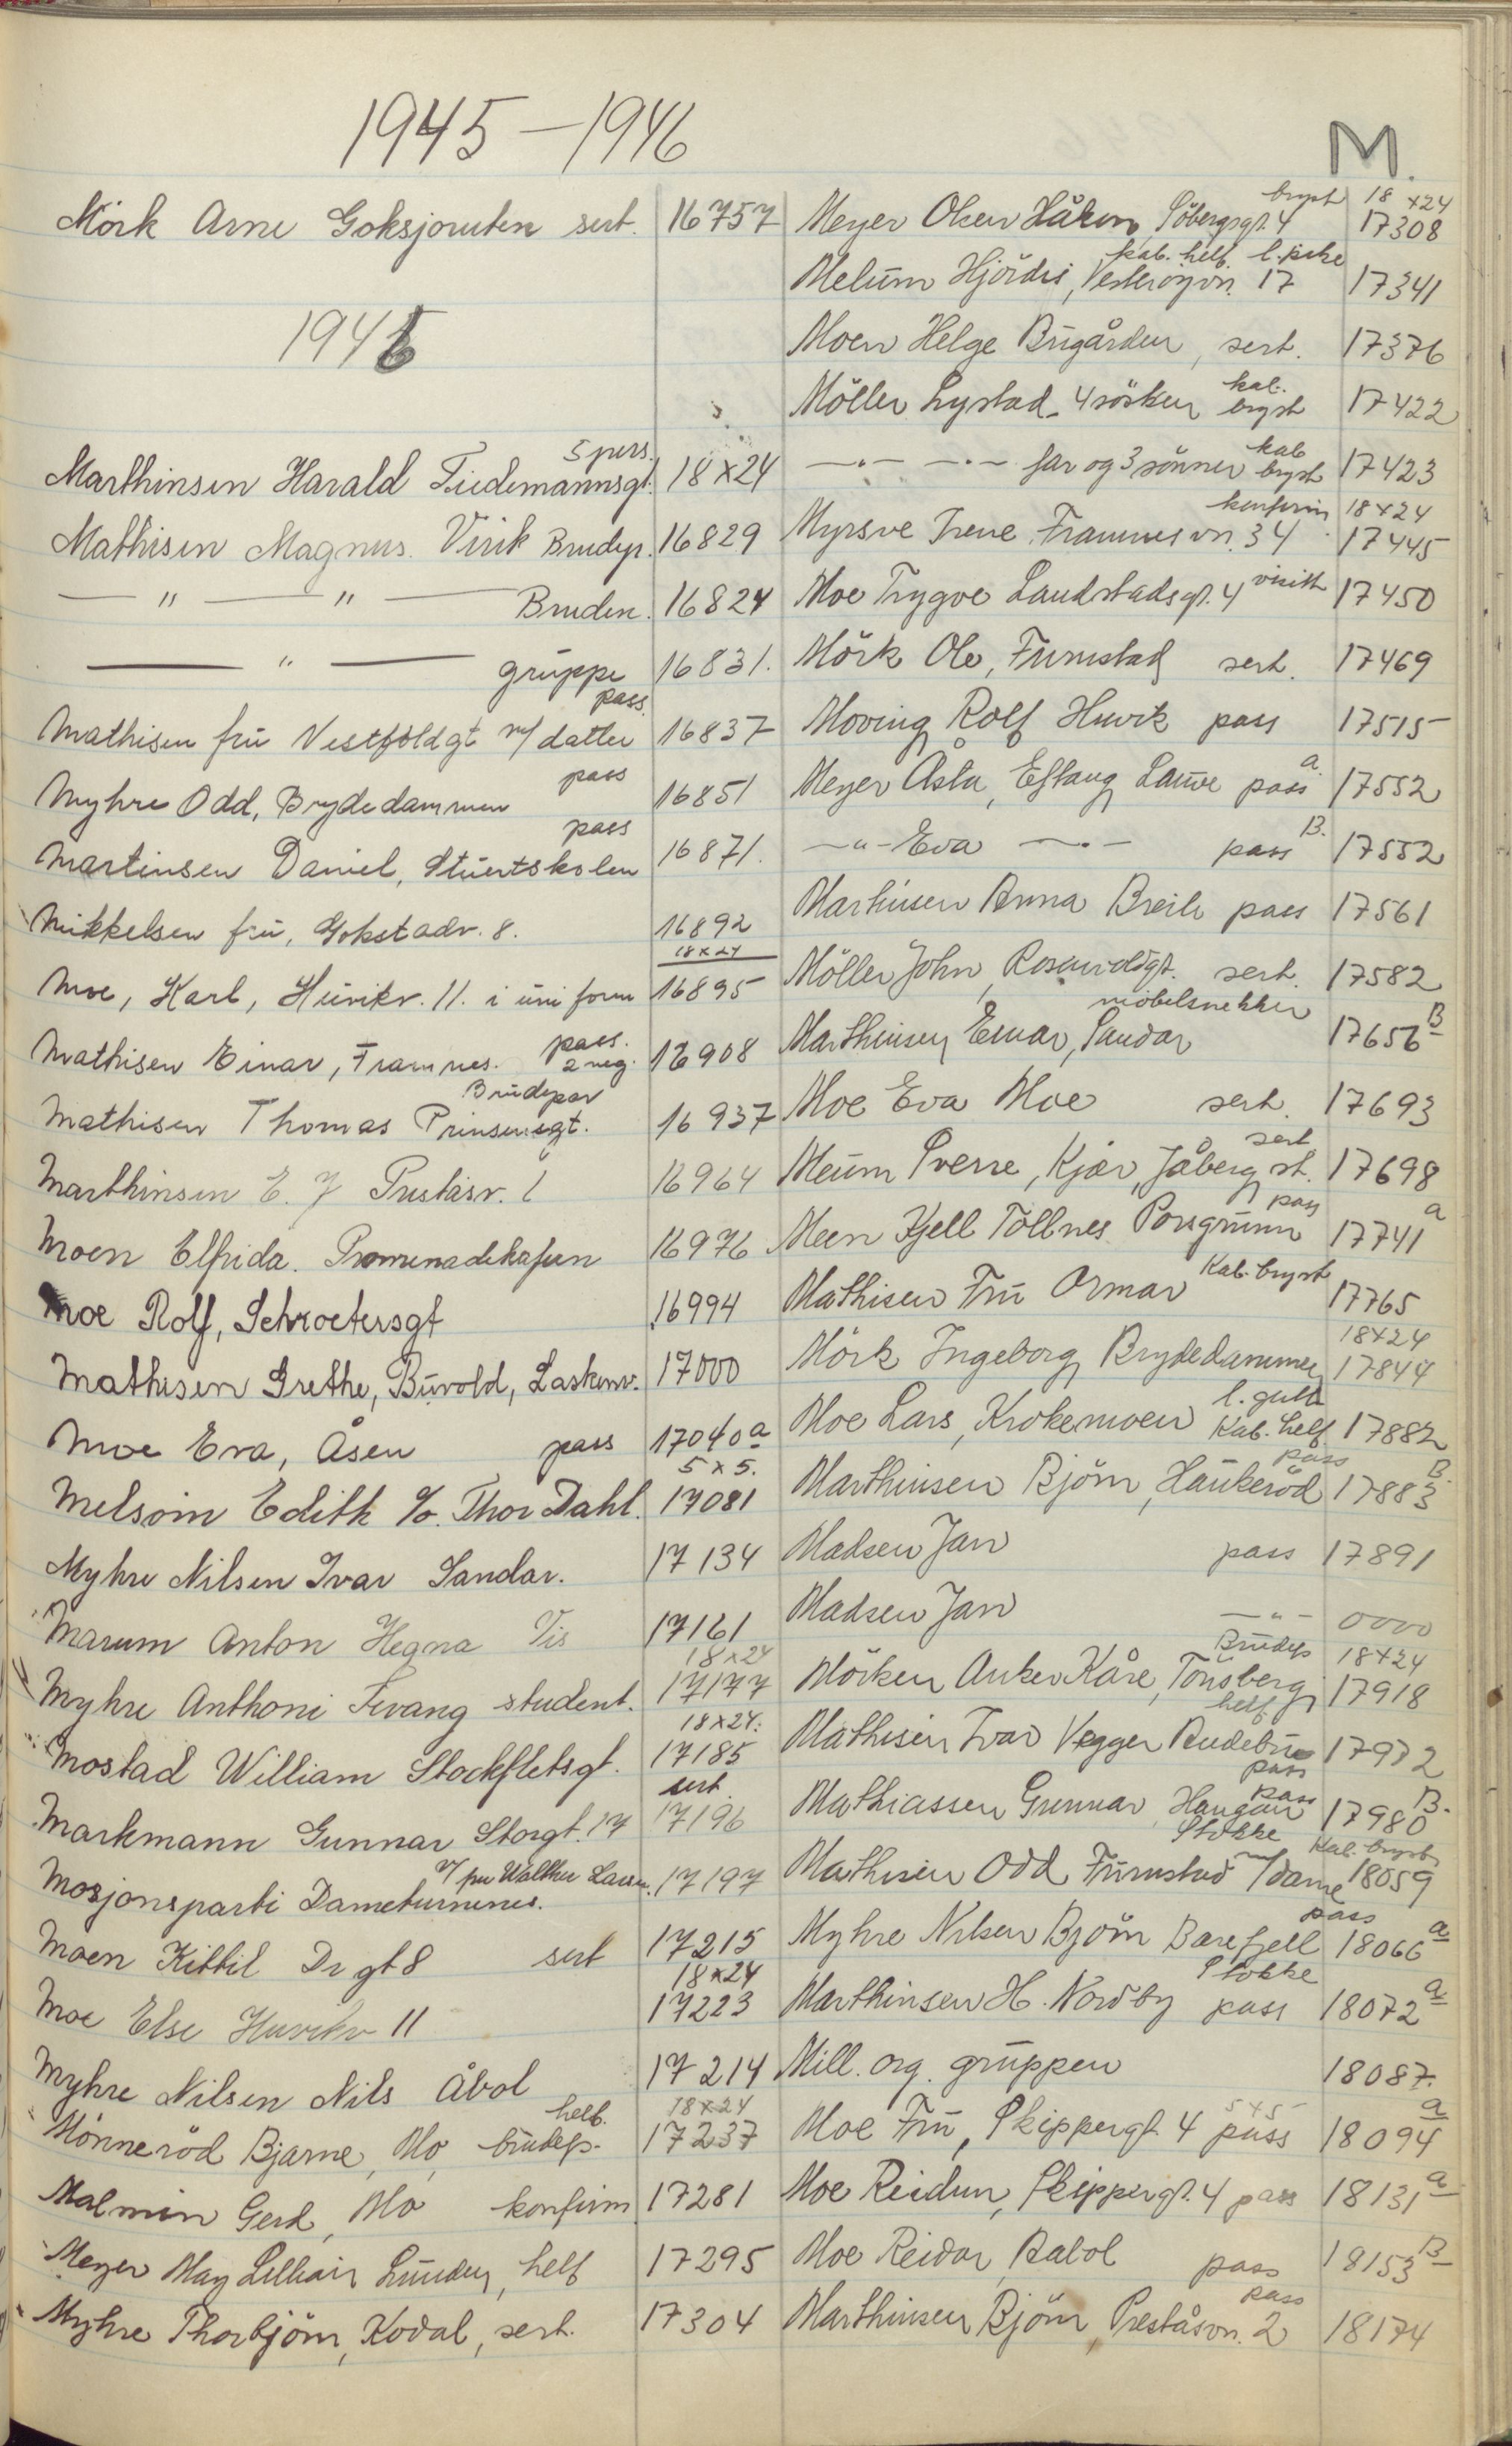 1945–1946
M.
Mörk Arne Goksjoruten sert. 16757
1946
5 pers.
Marthinsen Harald Tiedemannsgt. 18x24
Mathisen Magnus. Virik Brudep. 16829
— " — " — Bruden. 16824
— " — gruppe 16831.
pass.
Mathisen fru Vestfoldgt m/ datter 16837
pass
Myhre Odd, Brydedammen 16851
pass
Martinsen Daniel, Stuertskolen 16871.
Mikkelsen fru, Gokstadv. 8. 16892
18x24
Moe, Karl, Huvikv. 11. i uniform 16895
pass.
Mathisen Einar, Framnes. 2 neg. 16908
Brudepar
Mathisen Thomas Prinsensgt. 16937
Marthinsen E. J Preståsv. 16964
Moen Elfrida. Promenadekafeen 16976
Moe Rolf, Schroetersgt 16994
Mathisen Grethe, Buvold, Laskenv. 17000
Moe Eva, Åsen pass 17040a
5x5.
Melsom Edith c/o. Thor Dahl. 17081
Myhre Nilsen Ivar Sandar. 17134
Marum Anton Hegna Vis 17161
18x24
Myhre Anthoni Fevang student. 17177
18x24.
Mostad William Stockfletsgt. 17185
sert.
Markmann Gunnar Storgt. 17 17196
v/ fru Walther Larsen.
Mosjonsparti Dameturnenes. 17197
Moen Kittil Dr gt 8 sert 17215
18x24
Moe Else Huvikv 11 17223
Myhre Nilsen Nils Åbol 17214
helf. 18x24
Mönneröd Bjarne, Mo, brudep. 17237
Malmin Gerd, Mo konfirm 17281
Meyer May Lillian Lunden, helf 17295
Myhre Thorbjörn, Kodal, sert. 17304
bryst 18x24
Meyer Olsen Håkon, Söbergsgt. 4 17308
kab. helf. l. pike
Melum Hjördis, Vesteröyvn. 17 17341
Moen Helge Bugården, sert. 17376
kab.
Möller Lystad 4 sösken bryst 17422
kab
—"— —"— far og 3 sönner bryst 17423
konfirm 18x24
Myrsve Irene Framnesvn. 34 17445
Moe Trygve Landstadsgt. 4 visitt 17450
Mörk Ole, Furustad sert. 17469
Moving Rolf Huvik pass 17515
Meyer Åsta, Eftang Lauve pass a. 17552
—"— Eva —"— pass B. 17552
Marthinsen Anna Breili pass 17561
Möller John, Rosenvoldgt. sert. 17582
möbelsnekker
Marthinsen Einar, Sandar 17656 B
Moe Eva Moe sert. 17693
sert
Meum Sverre, Kjær, Jåberg st. 17698
pass
Meen Kjell Tollnes Porsgrunn 17741 a
Mathisen Fru Ormar Kab. bryst 17765
18x24
Mörk Ingeborg Brydedammen 17844
l. gutt
Moe Lars, Krokemoen Kab. helf. 17882
pass
Marthinsen Björn, Haukeröd 17883 B.
Madsen Jan pass 17891
Madsen Jan —"— 0000
Brudep 18x24
Mörken Anker Kåre, Tönsberg 17918
helf.
Mathisen Ivar Vegger Andebu 17972
pass
pass
Mathiassen Gunnar Haugan 17980 B.
Stokke Kab. bryst
Mathisen Odd Furustad m/dame 18059
pass
Myhre Nilsen Björn Barefjell 18066 a
Stokke
Marthinsen H. Nordby pass 18072 a
Mill. org. gruppen 18087.
5x5
Moe Fru, Skippergt. 4 pass 18094 a
Moe Reidun, Skippergt. 4 pass 18131 a
Moe Reidar, Rabol pass 18153 B
pass
Marthinsen Björn, Preståsvn. 2 18174